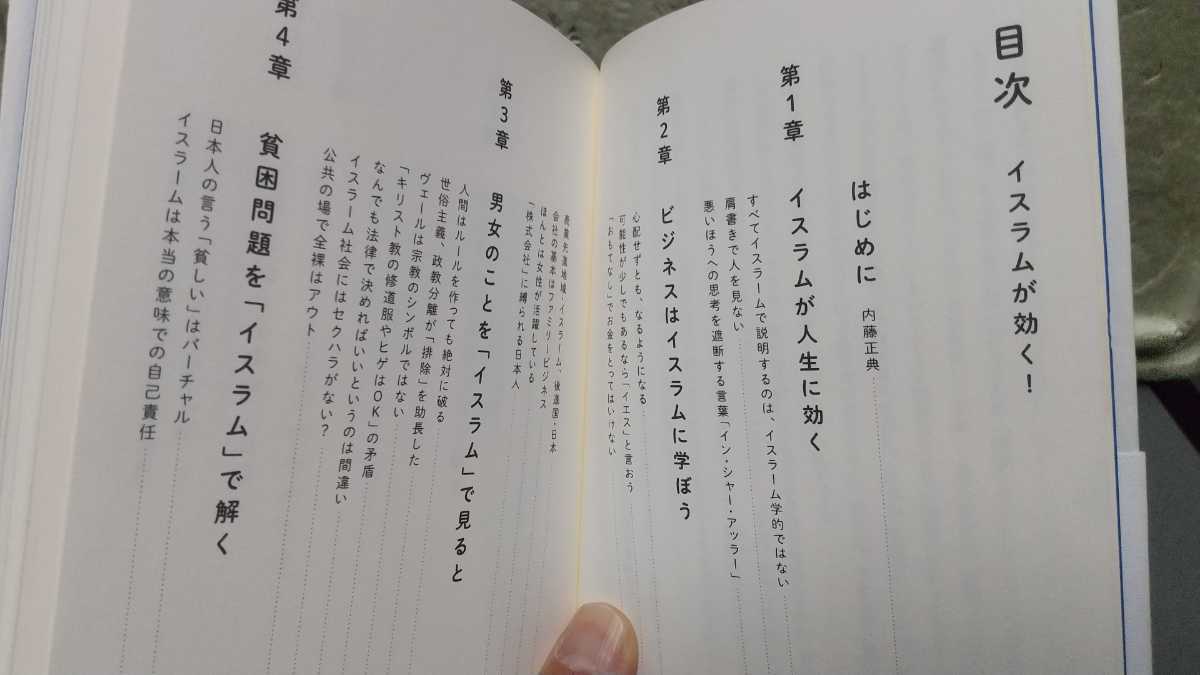 目次
イスラムが効く!
はじめに 内藤正典
第1章 イスラムが人生に効く
すべてイスラームで説明するのは、イスラーム学的ではない
肩書きで人を見ない
悪いほうへの思考を遮断する言葉「イン・シャー・アッラー」
第2章 ビジネスはイスラムに学ぼう
心配せずとも、なるようになる
可能性が少しでもあるなら「イエス」と言おう
「おもてなし」でお金をとってはいけない
商業先進地域・イスラーム、後進国・日本
会社の基本はファミリービジネス
ほんとは女性が活躍している
「株式会社」に縛られる日本人
第3章 男女のことを「イスラム」で見ると
人間はルールを作っても絶対に破る
世俗主義、政教分離が「排除」を助長した
ヴェールは宗教のシンボルではない
「キリスト教の修道服やヒゲはOK」の矛盾
なんでも法律で決めればいいというのは間違い
イスラーム社会にはセクハラがない?
公共の場で全裸はアウト
第4章 貧困問題を「イスラム」で解く
日本人の言う「貧しい」はバーチャル
イスラームは本当の意味での自己責任